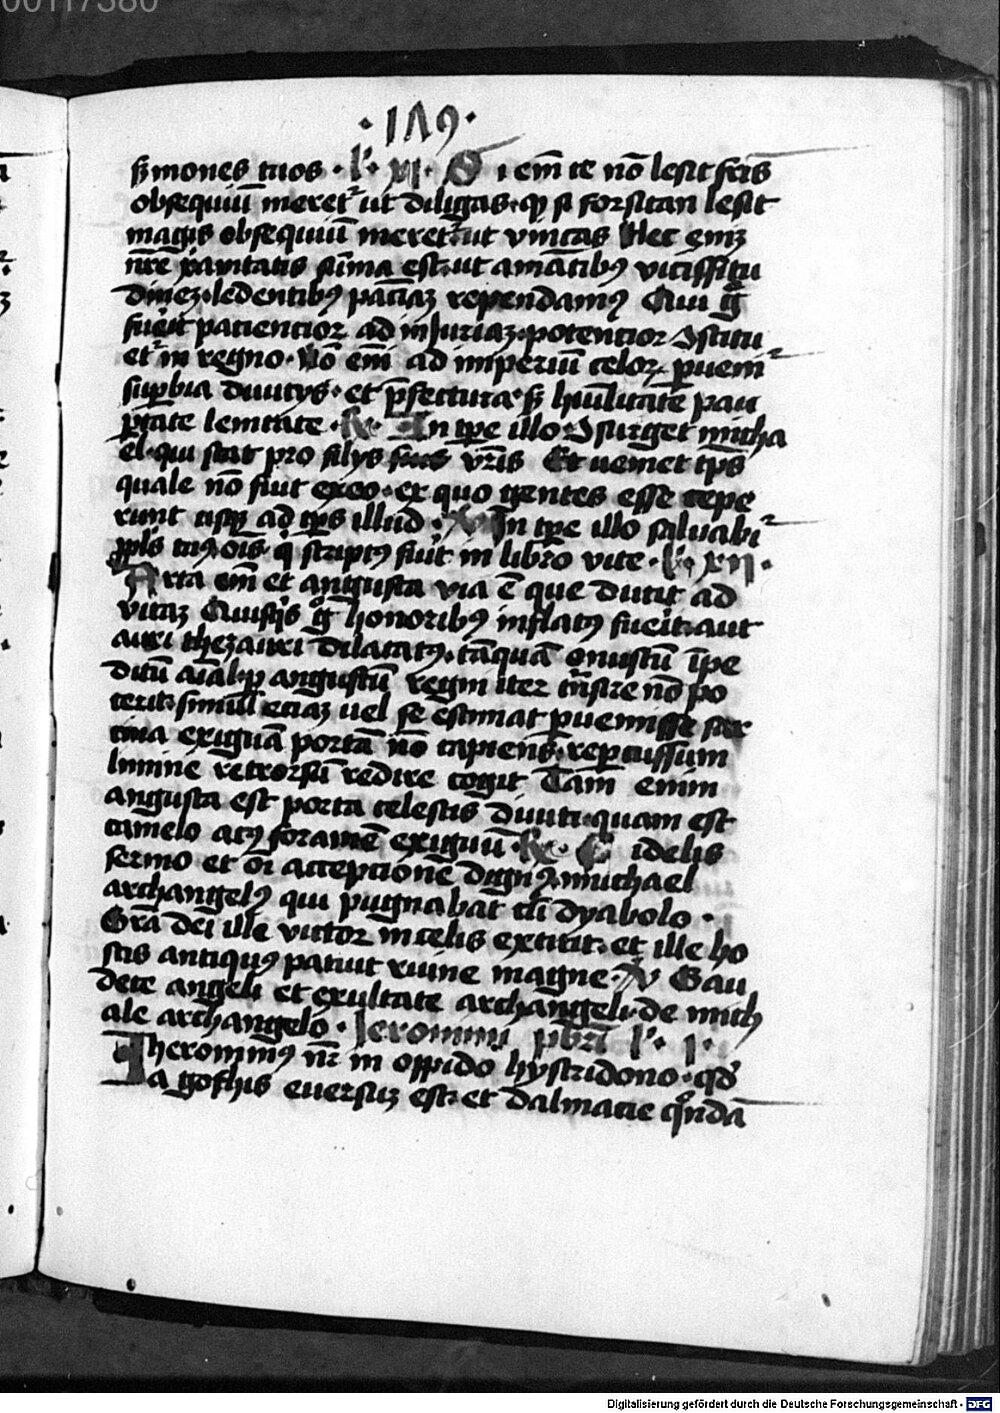 00117380
·1Λ9·
ẜmones tuos · lͨ· xj· S i em̄ te nō lesit frīs
obsequiū meret᷑ ut diligas· qꝫ si forsitan lesit
magis obsequiū meret᷑ ut vincas Hec enīꝫ
nr̄e xanitatis sūma est· ut amātibꝯ vicissitu
dineꝫ· ledentibꝯ paciāꝫ rependamꝯ Qui gͦ
fuerit patientior ad injuriaꝫ· potentior ꝯstitu
et᷑ in regno· Nō em̄ ad imperiū celoꝝ ꝑueni᷑
suꝑbia diuitys· et p̄fectura· ẜ hūilitate pau
ꝑtate lenitate · R̷· In tp̄e illo ꝯsurget micha
el· qui stat pro filys vr̄is Et veniet tp̄s
quale nō fiut ex eo· ex quo gentes esse cepe
runt usqꝫ ad tp̄s illud · V̷ In tp̄e illo saluabi᷑
pp̄ls tuꝯ oīs· qͥ scriptꝯ fuit in libro vite · lͨ· xij·
Arta em̄ et angusta via ē que ducit ad
vitaꝫ Quisqͥs gͦ honoribꝯ inflatꝯ fuerit· aut
auri thezauri dilatatꝯ· tāquā onustū īpe
ditū aīal· ꝑ angustū regni iter trn̄sire nō po
terit· simul eciaꝫ vel se estimat ꝑuenisse sar
cina exiguā portā nō capiens· reꝑcussum
limine retrorsū redire cogit Tam enim
angusta est porta celestis diuiti· quam est
camelo acꝯ foramē exiguū · R̷· F idelis
sermo et oī acceptione dignꝯ· michael
archangelꝯ qui pugnabat cū dyabolo ·
Grā dei ille victor in celis extitit· et ille ho
stis antiquꝯ patiut ruine magne· V̷ Gau
dete angeli et exultate archangeli· de mich
ale archangelo · Jeronimi pbr̄i lͨ· j·
Iheronimꝯ nr̄ in oppido hystridono· qd̄
a gothis euersuꝫ est· et dalmacie qͦndā
Digitalisierung gefördert durch die Deutsche Forschungsgemeinschaft - DFG